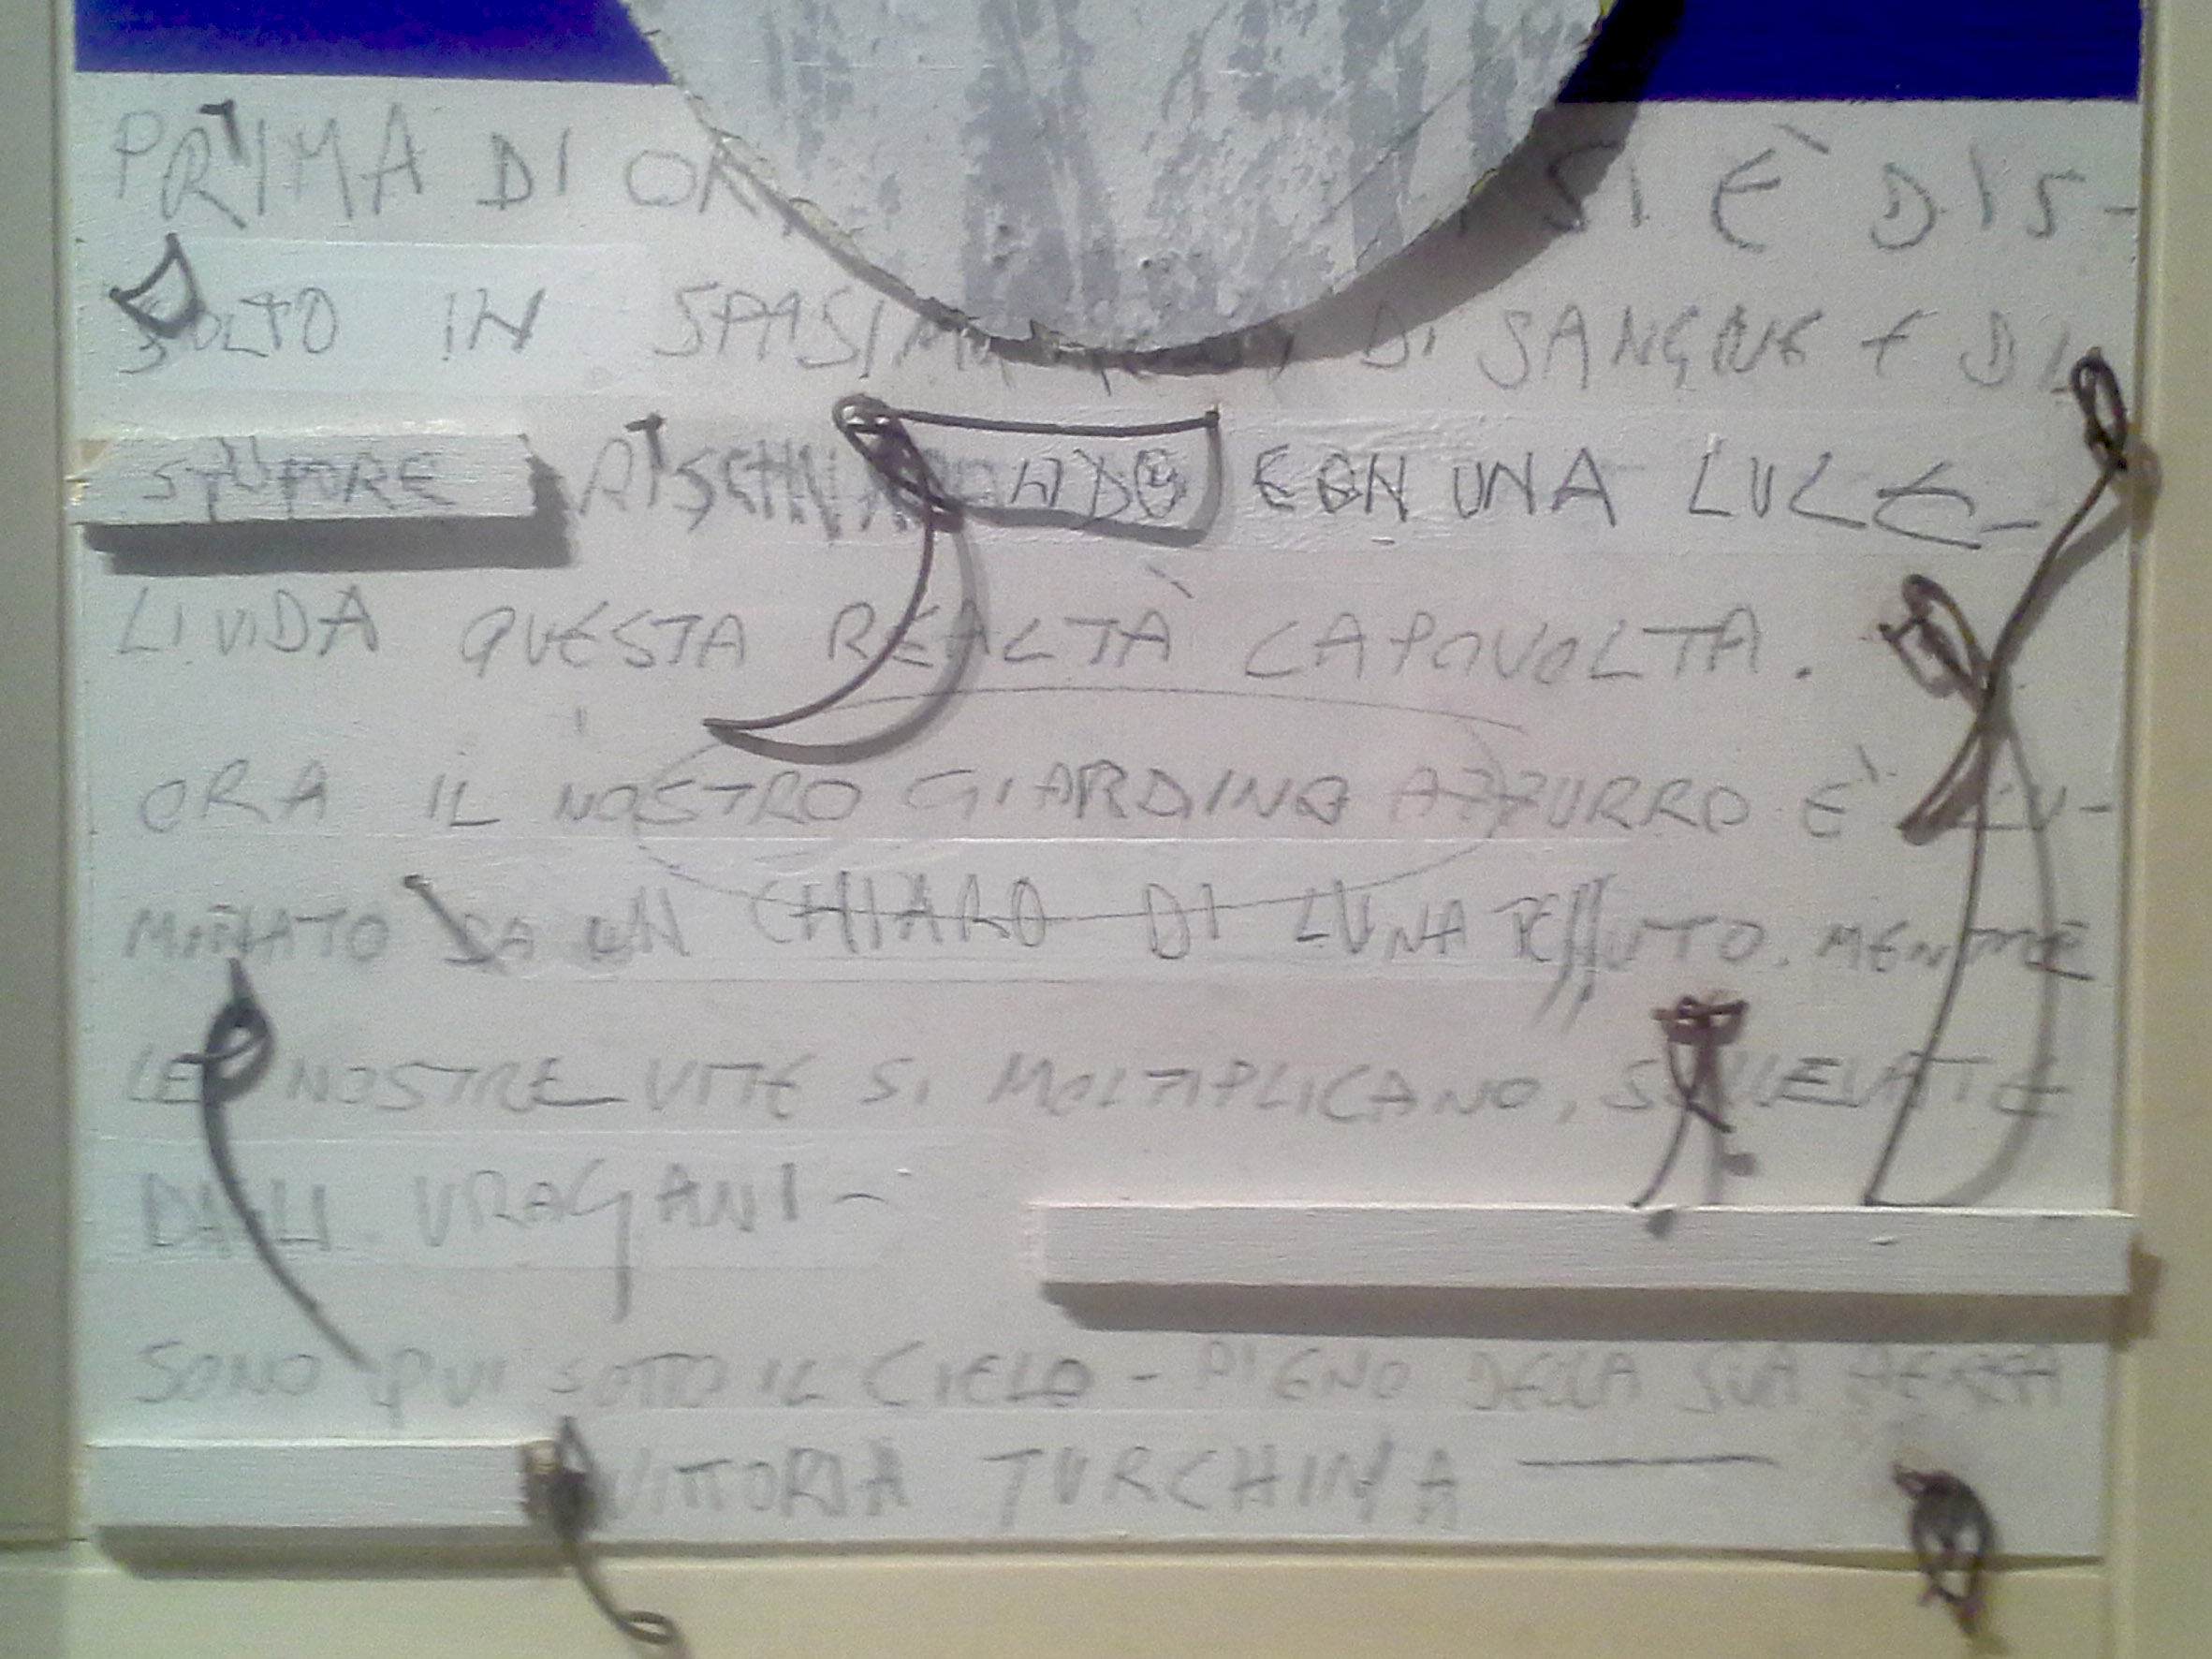 PRIMA DI SI È DIS-
SOLTO IN DI SANGUE E DI
STUPORE CON UNA LUCE
LIVIDA QUESTA REALTÀ CAPOVOLTA.
ORA IL NOSTRO GIARDINO AZZURRO È
DA UN CHIARO DI LUNA TESSUTO. MENTRE
LE NOSTRE VITE SI MOLTIPLICANO, SOLLEVATE
DAGLI URAGANI -
SONO QUI SOTTO IL CIELO - PIENO DELLA SUA
VITTORIA TURCHINA